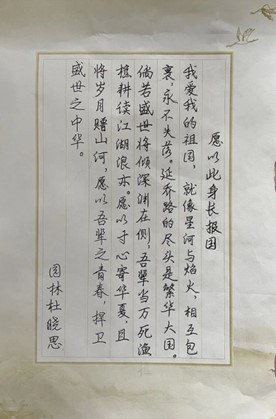 愿以此身长报国
我爱我的祖国，就像星河与焰火，相互包
裹，永不失落。延乔路的尽头是繁华大国。
倘若盛世将倾深渊在侧，吾辈当万死渔
樵耕续江湖浪亦。愿以寸心寄华夏，且
将岁月赠山河，愿以吾辈之青春，捍卫
盛世之中华。
园林杜晓思